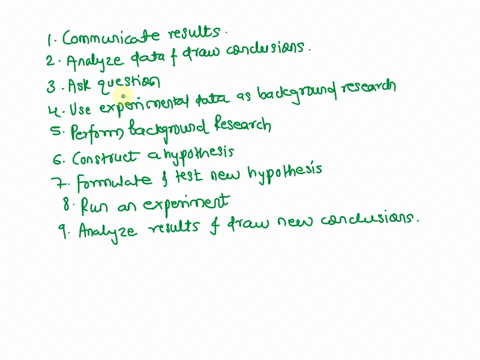 1. Communicate results.
2. Analyze data & draw conclusions.
3. Ask question
4. Use experimental data as background research
5. Perform background Research
6. Construct a hypothesis
7. Formulate & test new hypothesis
8. Run an experiment
9. Analyze results & draw new conclusions.